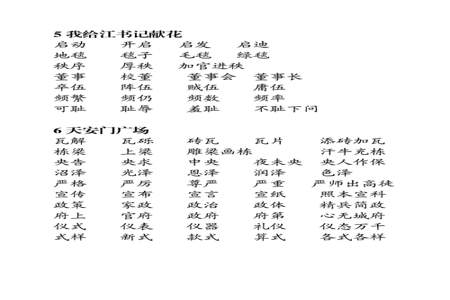 5 我给江书记献花
启动 开启 启发 启迪
地毯 毯子 毛毯 绿毯
秩序 厚秩 加官进秩
董事 校董 董事会 董事长
卒伍 阵伍 贼伍 庸伍
频繁 频仍 频数 频率
可耻 耻辱 羞耻 不耻下问
6 天安门广场
瓦解 瓦砾 砖瓦 瓦片 添砖加瓦
栋梁 上梁 雕梁画栋 汗牛充栋
央告 央求 中央 夜未央 央人作保
沼泽 光泽 恩泽 润泽 色泽
严格 严厉 尊严 严重 严师出高徒
宣传 宣布 宣言 宣纸 照本宣科
政策 家政 政治 政体 精兵简政
府上 官府 政府 府第 心无城府
仪式 仪表 仪器 礼仪 仪态万千
式样 新式 款式 算式 各式各样